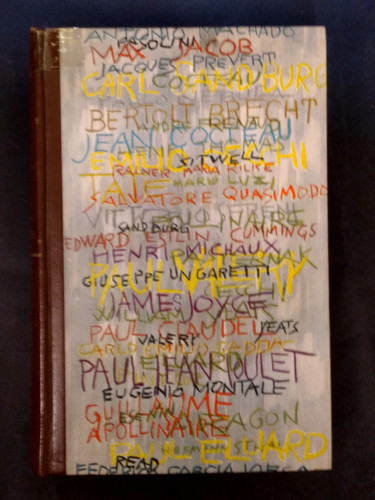 ANTONIO MACHADO
PASOLINA
MAX JACOB
JACQUES PREVERT
COCTEAU
CARL SANDBURG
BERTOLT BRECHT
ANDRE FRENAUD
JEAN COCTEAU
EMILIO CECCHI
SITWELL
RAINER MARIA RILKE
TATE
MARIO LUZI
SALVATORE QUASIMODO
VITTORIO
SANDBURG
EDWARD ESTLIN CUMMINGS
HENRI MICHAUX
PAUL VALERY
GIUSEPPE UNGARETTI
JAMES JOYCE
WILLIAM YEATS
PAUL CLAUDEL
YEATS
VALERY
CARLO EMILIO GADDA
PAUL
EUGENIO MONTALE
GUILLAUME
ARAGON
APOLLINAIRE
PAUL ELUARD
READ
FEDERICO GARCIA LORCA